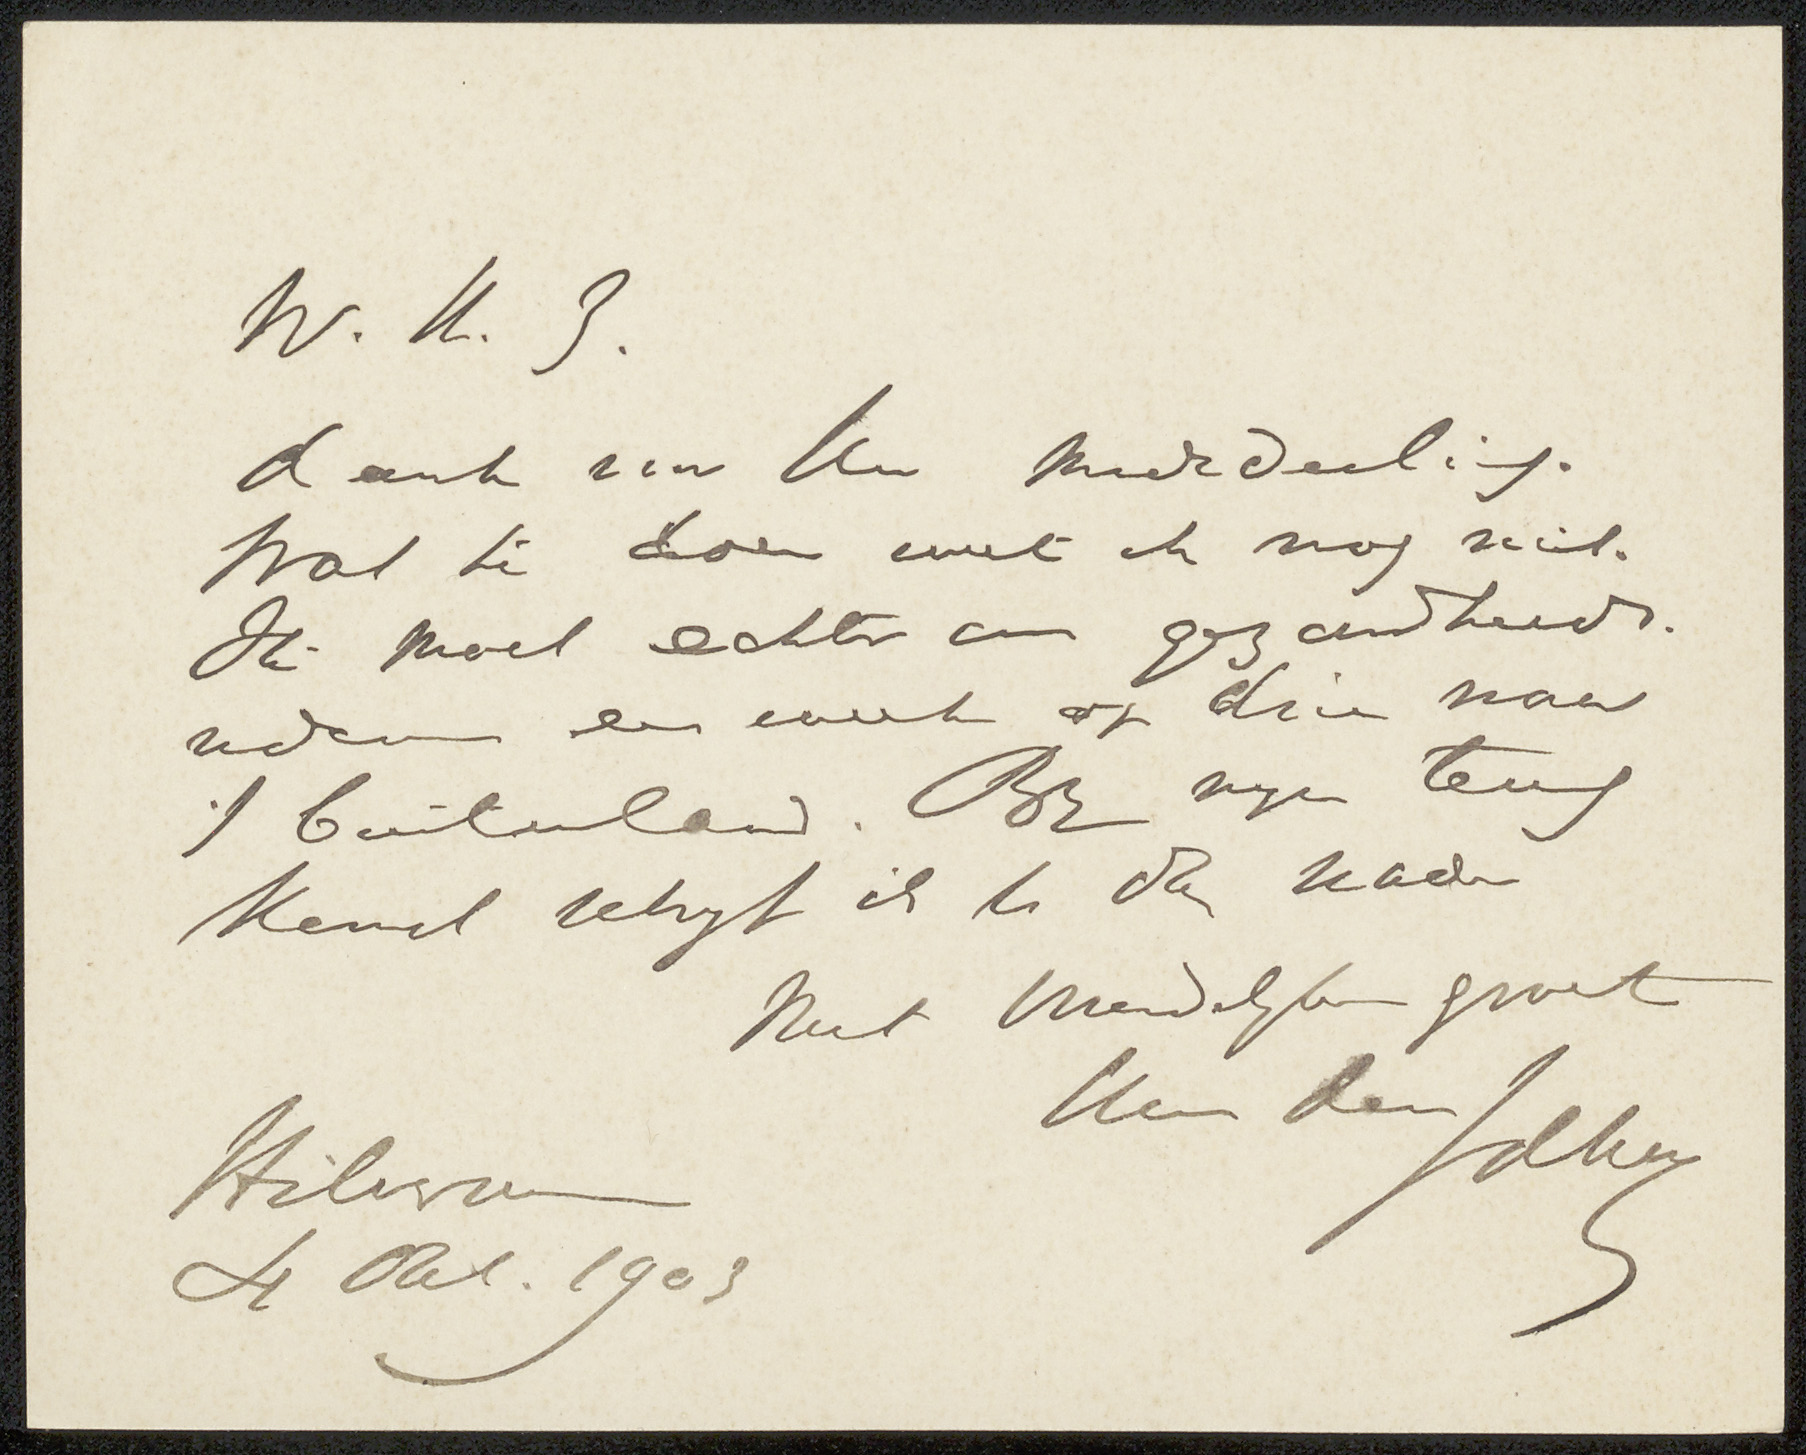 W. H. Z.
dank voor Uw mededeeling.
Wat te doen weet ik nog niet.
Ik moet echter om gezondheids.
redenen een week of drie naar
't buitenland. By myn terug
komst schryf ik U dan nader
Met vriendelyken groet
Van den
Hilversum
4 Oct. 1903